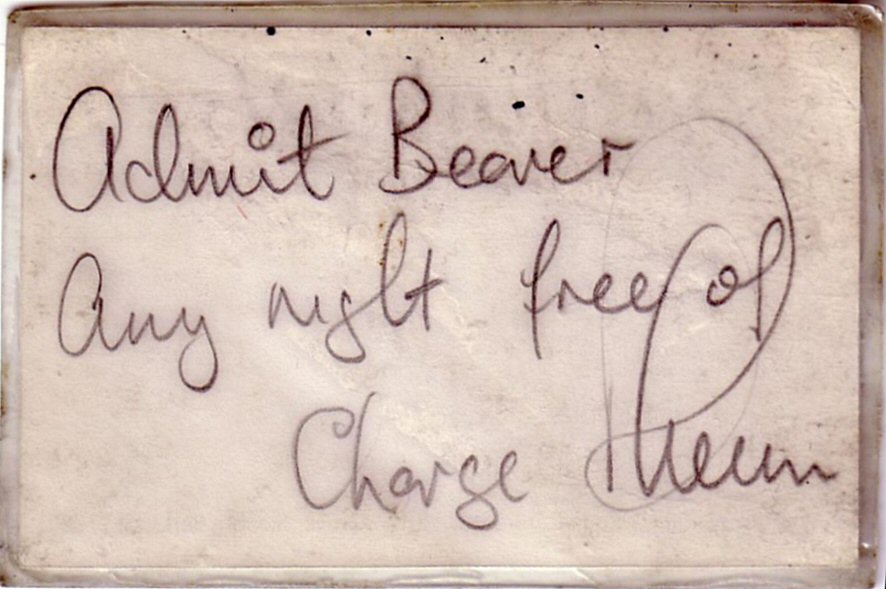 Admit Beaver
Any night free of
Charge